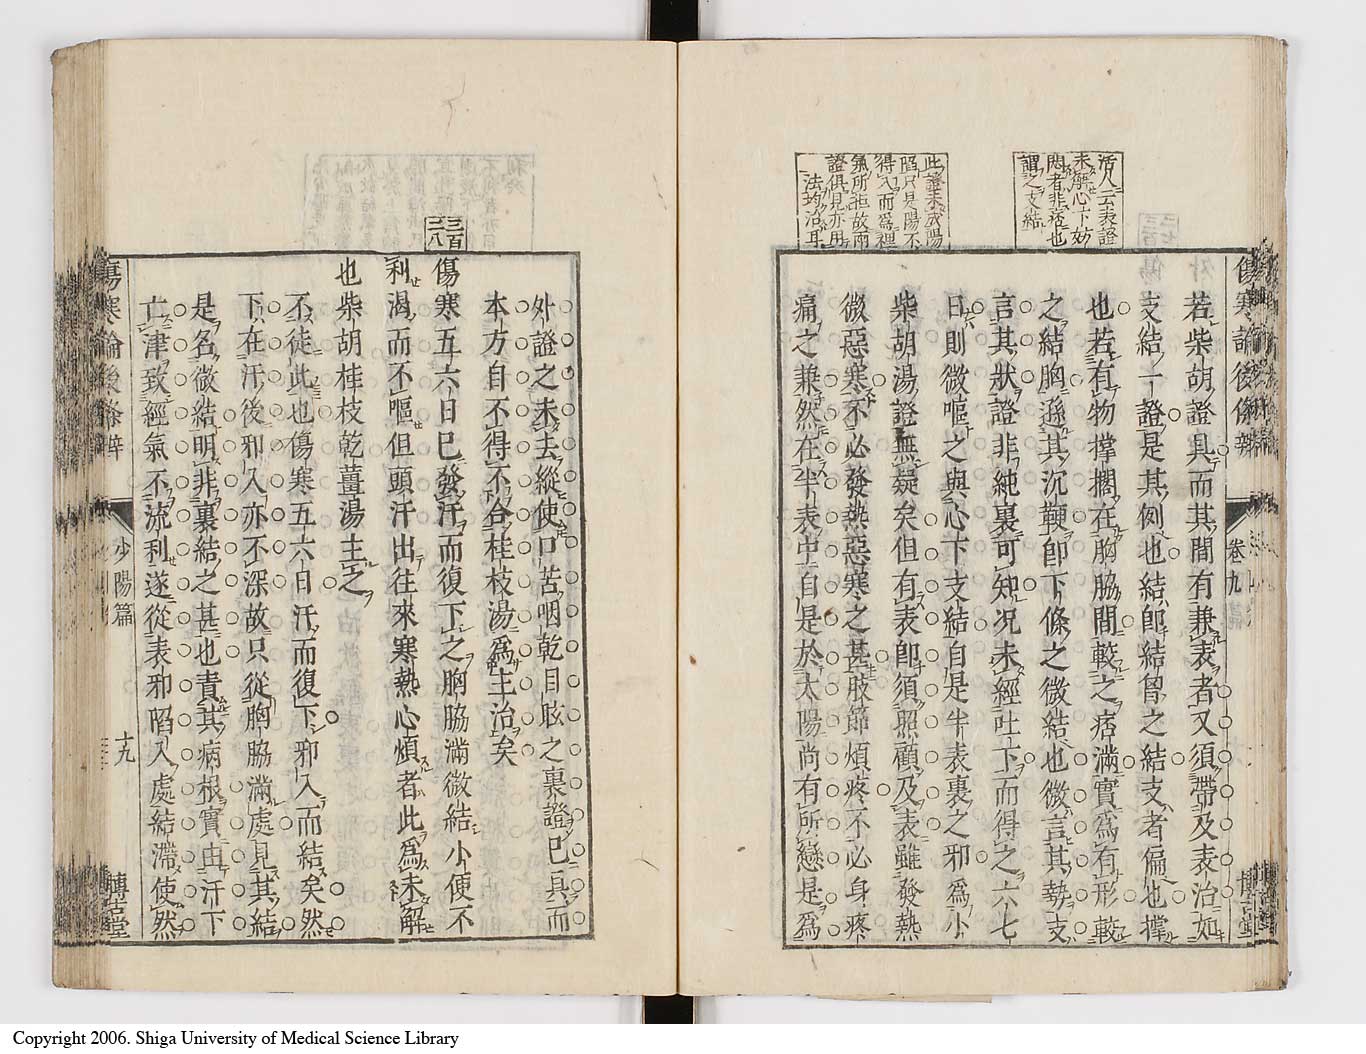 傷寒論後條辨
卷九
博古堂
活人云表證
未解心下妨
悶者非痞也
謂之支結
此證未成陽
陷只是陽不
得入而爲裡
氣所拒故兩
證俱見亦用
法均治耳
若柴胡證具而其間有兼表者又須帶及表治如
支結一證是其例也結卽結胷之結支者偏也撑
也若有物撑擱在胸脇間較之痞滿實爲有形較
之結胸遜其沉鞕卽下條之微結也微言其勢支
言其狀證非純裏可知况未經吐下而得之六七
日則微嘔之與心下支結自是半表裏之邪爲小
柴胡湯證無疑矣但有表卽須照顧及表雖發熱
微惡寒不必發熱惡寒之甚肢節煩疼不必身疼
痛之兼然在半表中自是於太陽尚有所戀是爲
三百
二八
外證之未去縱使口苦咽乾目眩之裏證已具而
本方自不得不合桂枝湯爲主治矣
傷寒五六日已發汗而復下之胸脇滿微結小便不
利渴而不嘔但頭汗出往來寒熱心煩者此爲未解
也柴胡桂枝乾薑湯主之
不徒此也傷寒五六日汗而復下邪入而結矣然
下在汗後邪入亦不深故只從胸脇滿處見其結
是名微結明非裏結之甚也責其病根實由汗下
亡津致經氣不流利遂從表邪陷入處結滯使然
傷寒論後條辨
少陽篇
十九
博古堂
Copyright 2006. Shiga University of Medical Science Library